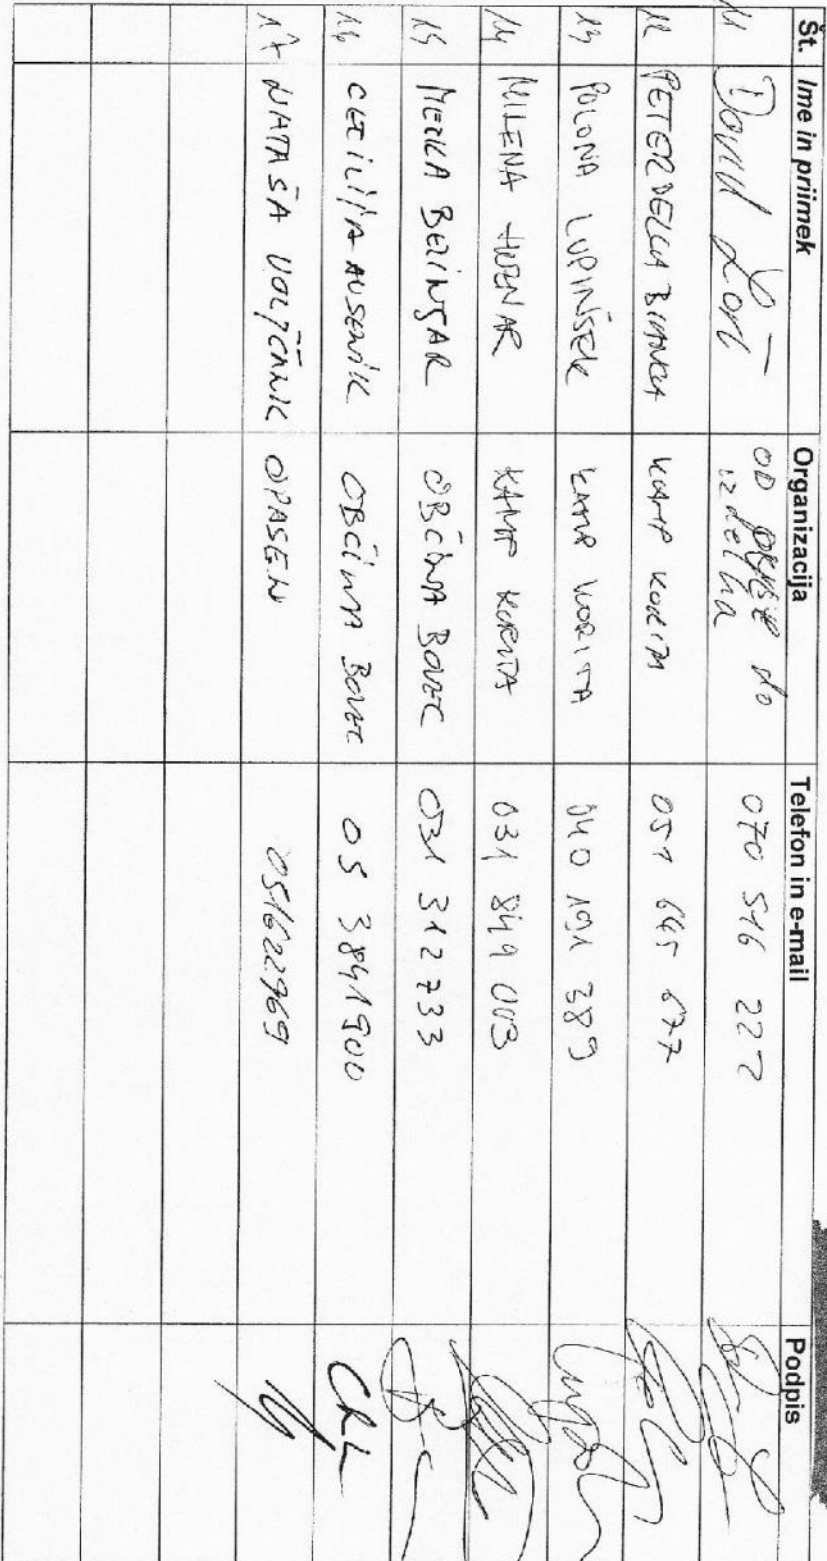 Št. Ime in priimek Organizacija Telefon in e-mail Podpis
11 David OD do
izdelka 070 516 222
12 PETER DELLA BIANCA KAMP KORITA 051 645 677
13 POLONA LUPINŠEK KAMP KORITA 040 191 389
14 MILENA KAMP KORITA 031 849 003
15 BERINŠAR OBČINA BOVEC 031 312 733
16 CECILIJA AUSENIK OBČINA BOVEC 05 3841900
17 NATAŠA OPASEN 051622969